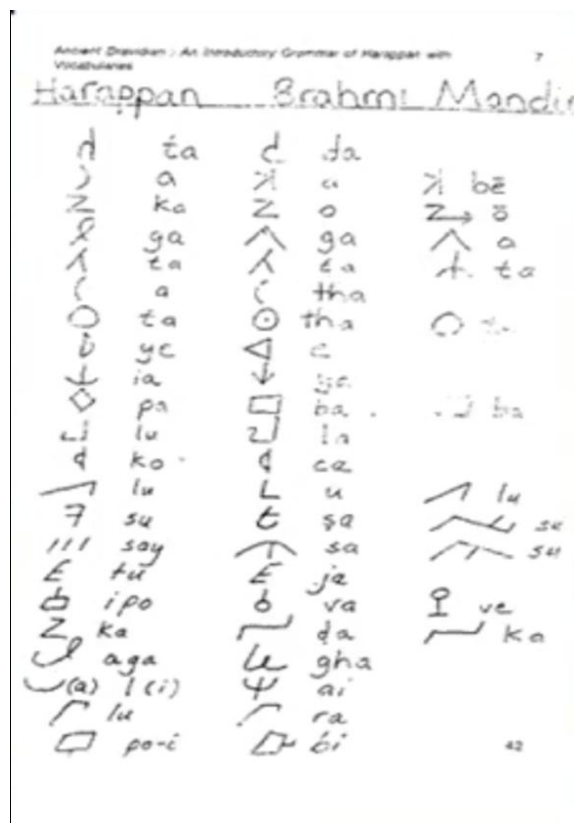 Ancient Dravidian : An Introductory Grammar of Harappan with 7
Vocabularies
Harappan Brahmi Mandi
ta da
a a bē
ka o ō
ga ga a
ta ta ta
a tha
ta tha
ye e
ia
pa ba ba
lu la
ko ca
lu u lu
su ṣa su
say sa su
tu ja
ipo va ve
ka ḍa ka
aga gha
(a) l (i) ai
lu ra
po-i bi 42